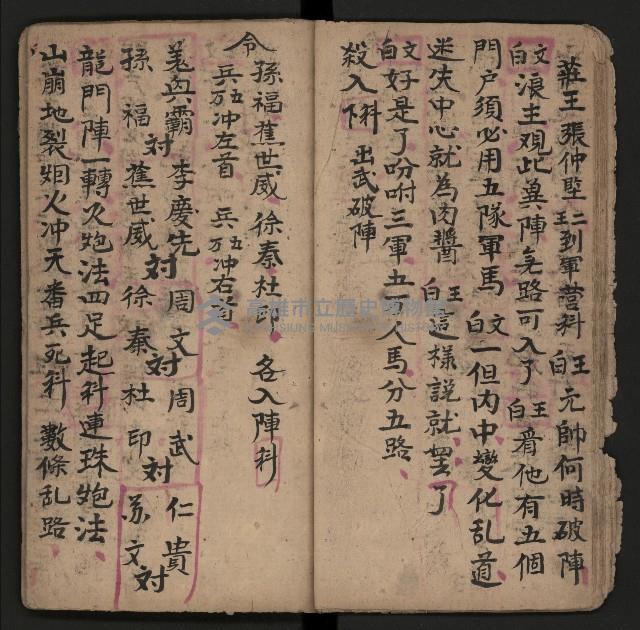 莊王 張仲堅 二王到軍營科 王白 元帥何時破陣
文白 浪主观此異陣 無路可入了 王白 看他有五個
門户須必用五隊軍馬 文白 一但内中變化乱道
迷失中心就為肉醬 王白 這樣説就罢了
文白 好是了吩咐三軍五人馬分五路
殺入科 下 出武破陣
令 孫福 蕉世威 徐秦 杜印 各入陣科
兵五万冲左首 兵五万冲右首
羗興霸 对 李慶先 对 周文 对 周武 对 仁貴 对
孫福 蕉世威 徐秦 杜印 苏文
龍門陣一轉久炮法四足起科連珠炮法
山崩地裂烟火冲天番兵死科 數條乱路
高雄市立歷史博物館
KAOHSIUNG MUSEUM OF HISTORY